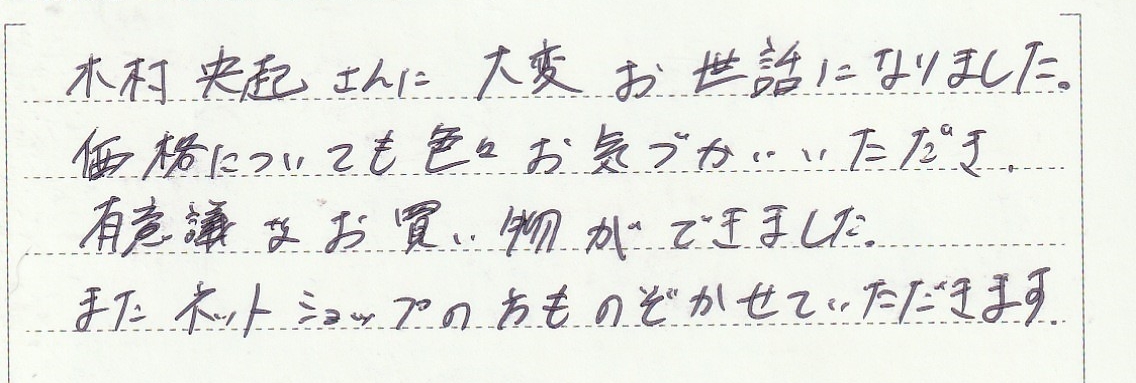 木村 央起 さんに 大変 お 世話になりました。
価格についても色々お気づかいいただき.
有意議なお買い物ができました。
またネットショップの方ものぞかせていただきます.